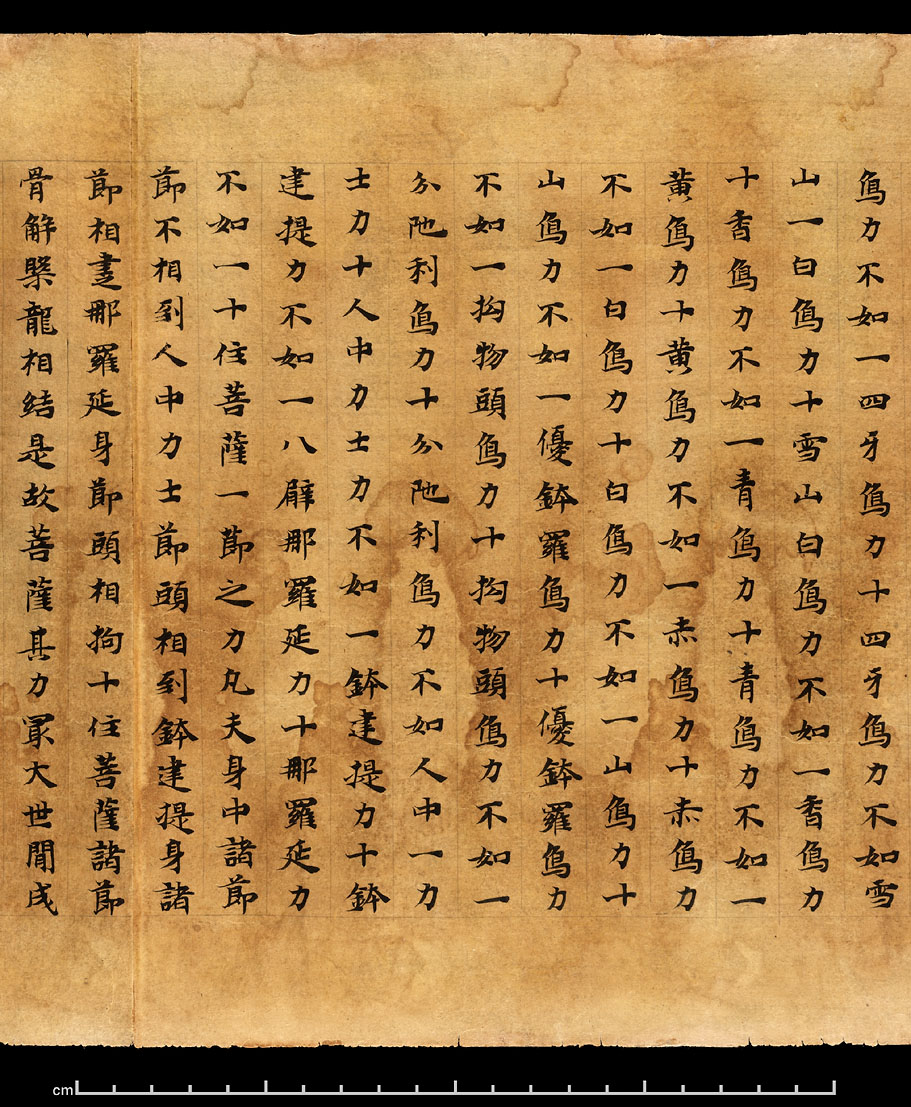 象力不如一四牙象力十四牙象力不如雪
山一白象力十雪山白象力不如一香象力
十香象力不如一青象力十青象力不如一
黃象力十黃象力不如一赤象力十赤象力
不如一白象力十白象力不如一山象力十
山象力不如一優鉢羅象力十優鉢羅象力
不如一拘物頭象力十拘物頭象力不如一
分陁利象力十分陁利象力不如人中一力
士力十人中力士力不如一鉢建提力十鉢
建提力不如一八臂那羅延力十那羅延力
不如一十住菩薩一節之力凡夫身中諸節
節不相到人中力士節頭相到鉢建提身諸
節相那羅延身節頭相拘十住菩薩諸節
骨解槃龍相結是故菩薩其力最大世間成
cm